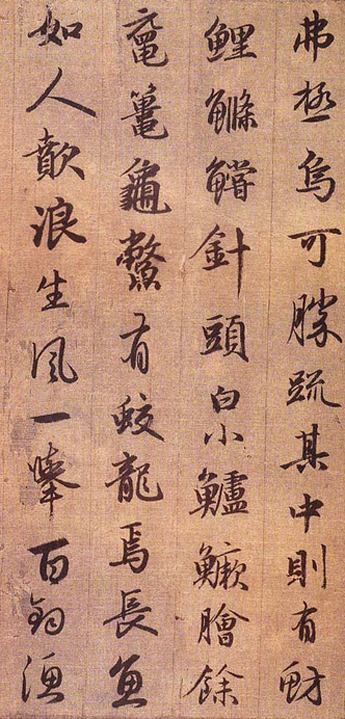 弗極烏可勝疏其中則有魴
鯉鰷鱨針頭白小鱸鱖膾餘
黿鼉龜鱉有蛟龍焉長魚
如人歕浪生風一舉百鈞漁